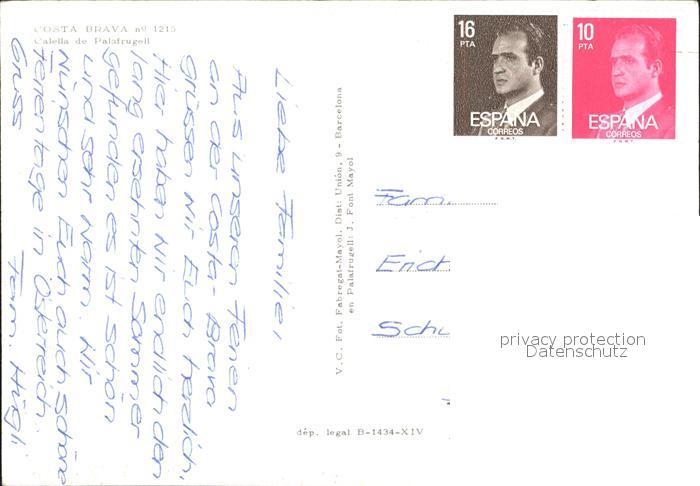 COSTA BRAVA nº 1215
Calella de Palafrugell
Liebe Familie,
Aus unseren Ferien
an der Costa-Brava
grüssen Wir Euch herzlich,
Hier haben Wir endlich den
lang ersehnten Sommer
gefunden es ist schön
und sehr Warm. Wir
Wünschen Euch auch schöne
Ferientage in Östereich.
Gruss Fam. Hügli
V.C. Fot. Fabregat-Mayol. Dist: Unión, 9 - Barcelona
en Palafrugell: J. Font Mayol
dép. legal B-1434-XIV
16
PTA
ESPAÑA
CORREOS
F.N.M.T.
10
PTA
ESPAÑA
CORREOS
F.N.M.T.
Fam.
Erich
Schu
privacy protection
Datenschutz